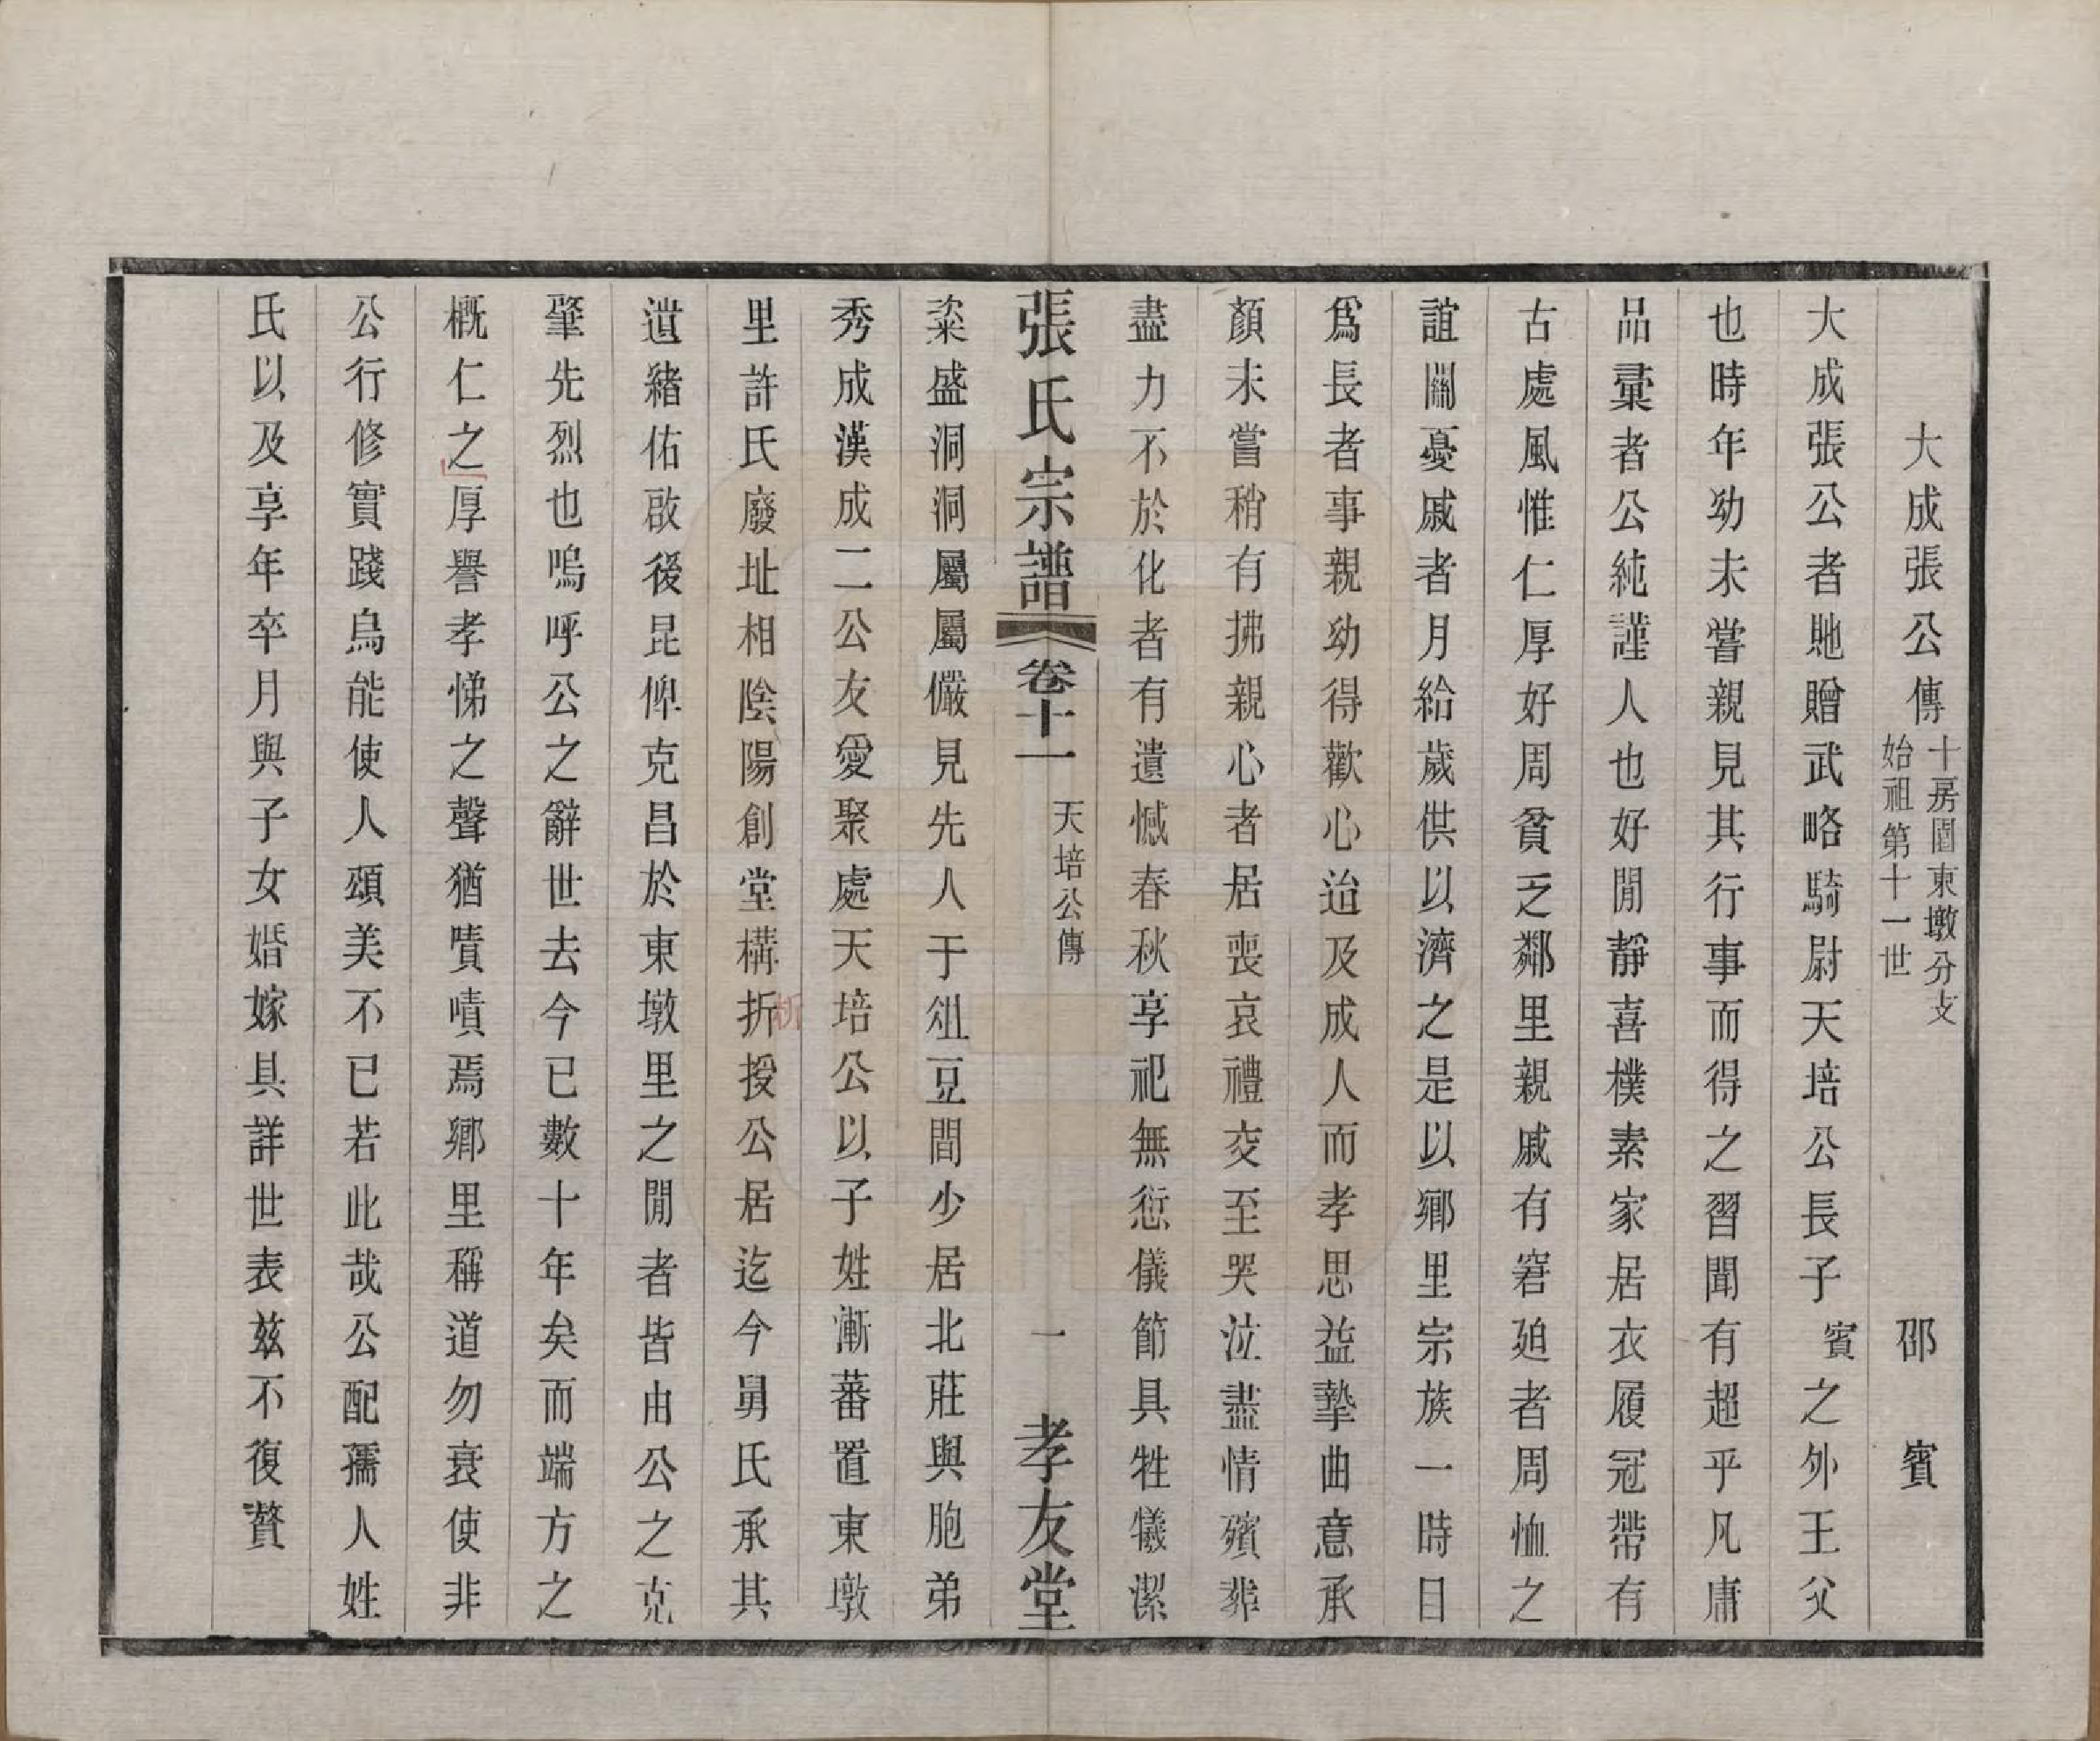 大成張公傳 十房圍東墩分支 始祖第十一世 邵賓
大成張公者貤贈武略騎尉天培公長子賓之外王父
也時年幼未嘗親見其行事而得之習聞有超乎凡庸
品彙者公純謹人也好閒靜喜樸素家居衣履冠帶有
古處風惟仁厚好周貧乏鄰里親戚有窘廹者周恤之
誼關憂戚者月給歲供以濟之是以鄉里宗族一時目
爲長者事親幼得歡心迨及成人而孝思益摯曲意承
顏未嘗稍有拂親心者居喪哀禮交至哭泣盡情殯葬
盡力不於化者有遺憾春秋享祀無愆儀節具牲犧潔
張氏宗譜 卷十一 天培公傳 一 孝友堂
粢盛洞洞屬屬儼見先人于俎豆間少居北莊與胞弟
秀成漢成二公友愛聚處天培公以子姓漸蕃置東墩
里許氏廢址相陰陽創堂構折授公居迄今舅氏承其
析
遺緒佑啟後昆俾克昌於東墩里之閒者皆由公之克
肇先烈也嗚呼公之辭世去今已數十年矣而端方之
概仁之厚譽孝悌之聲猶嘖嘖焉鄉里稱道勿衰使非
公行修實踐烏能使人頌美不已若此哉公配孺人姓
氏以及享年卒月與子女婚嫁具詳世表茲不復贅